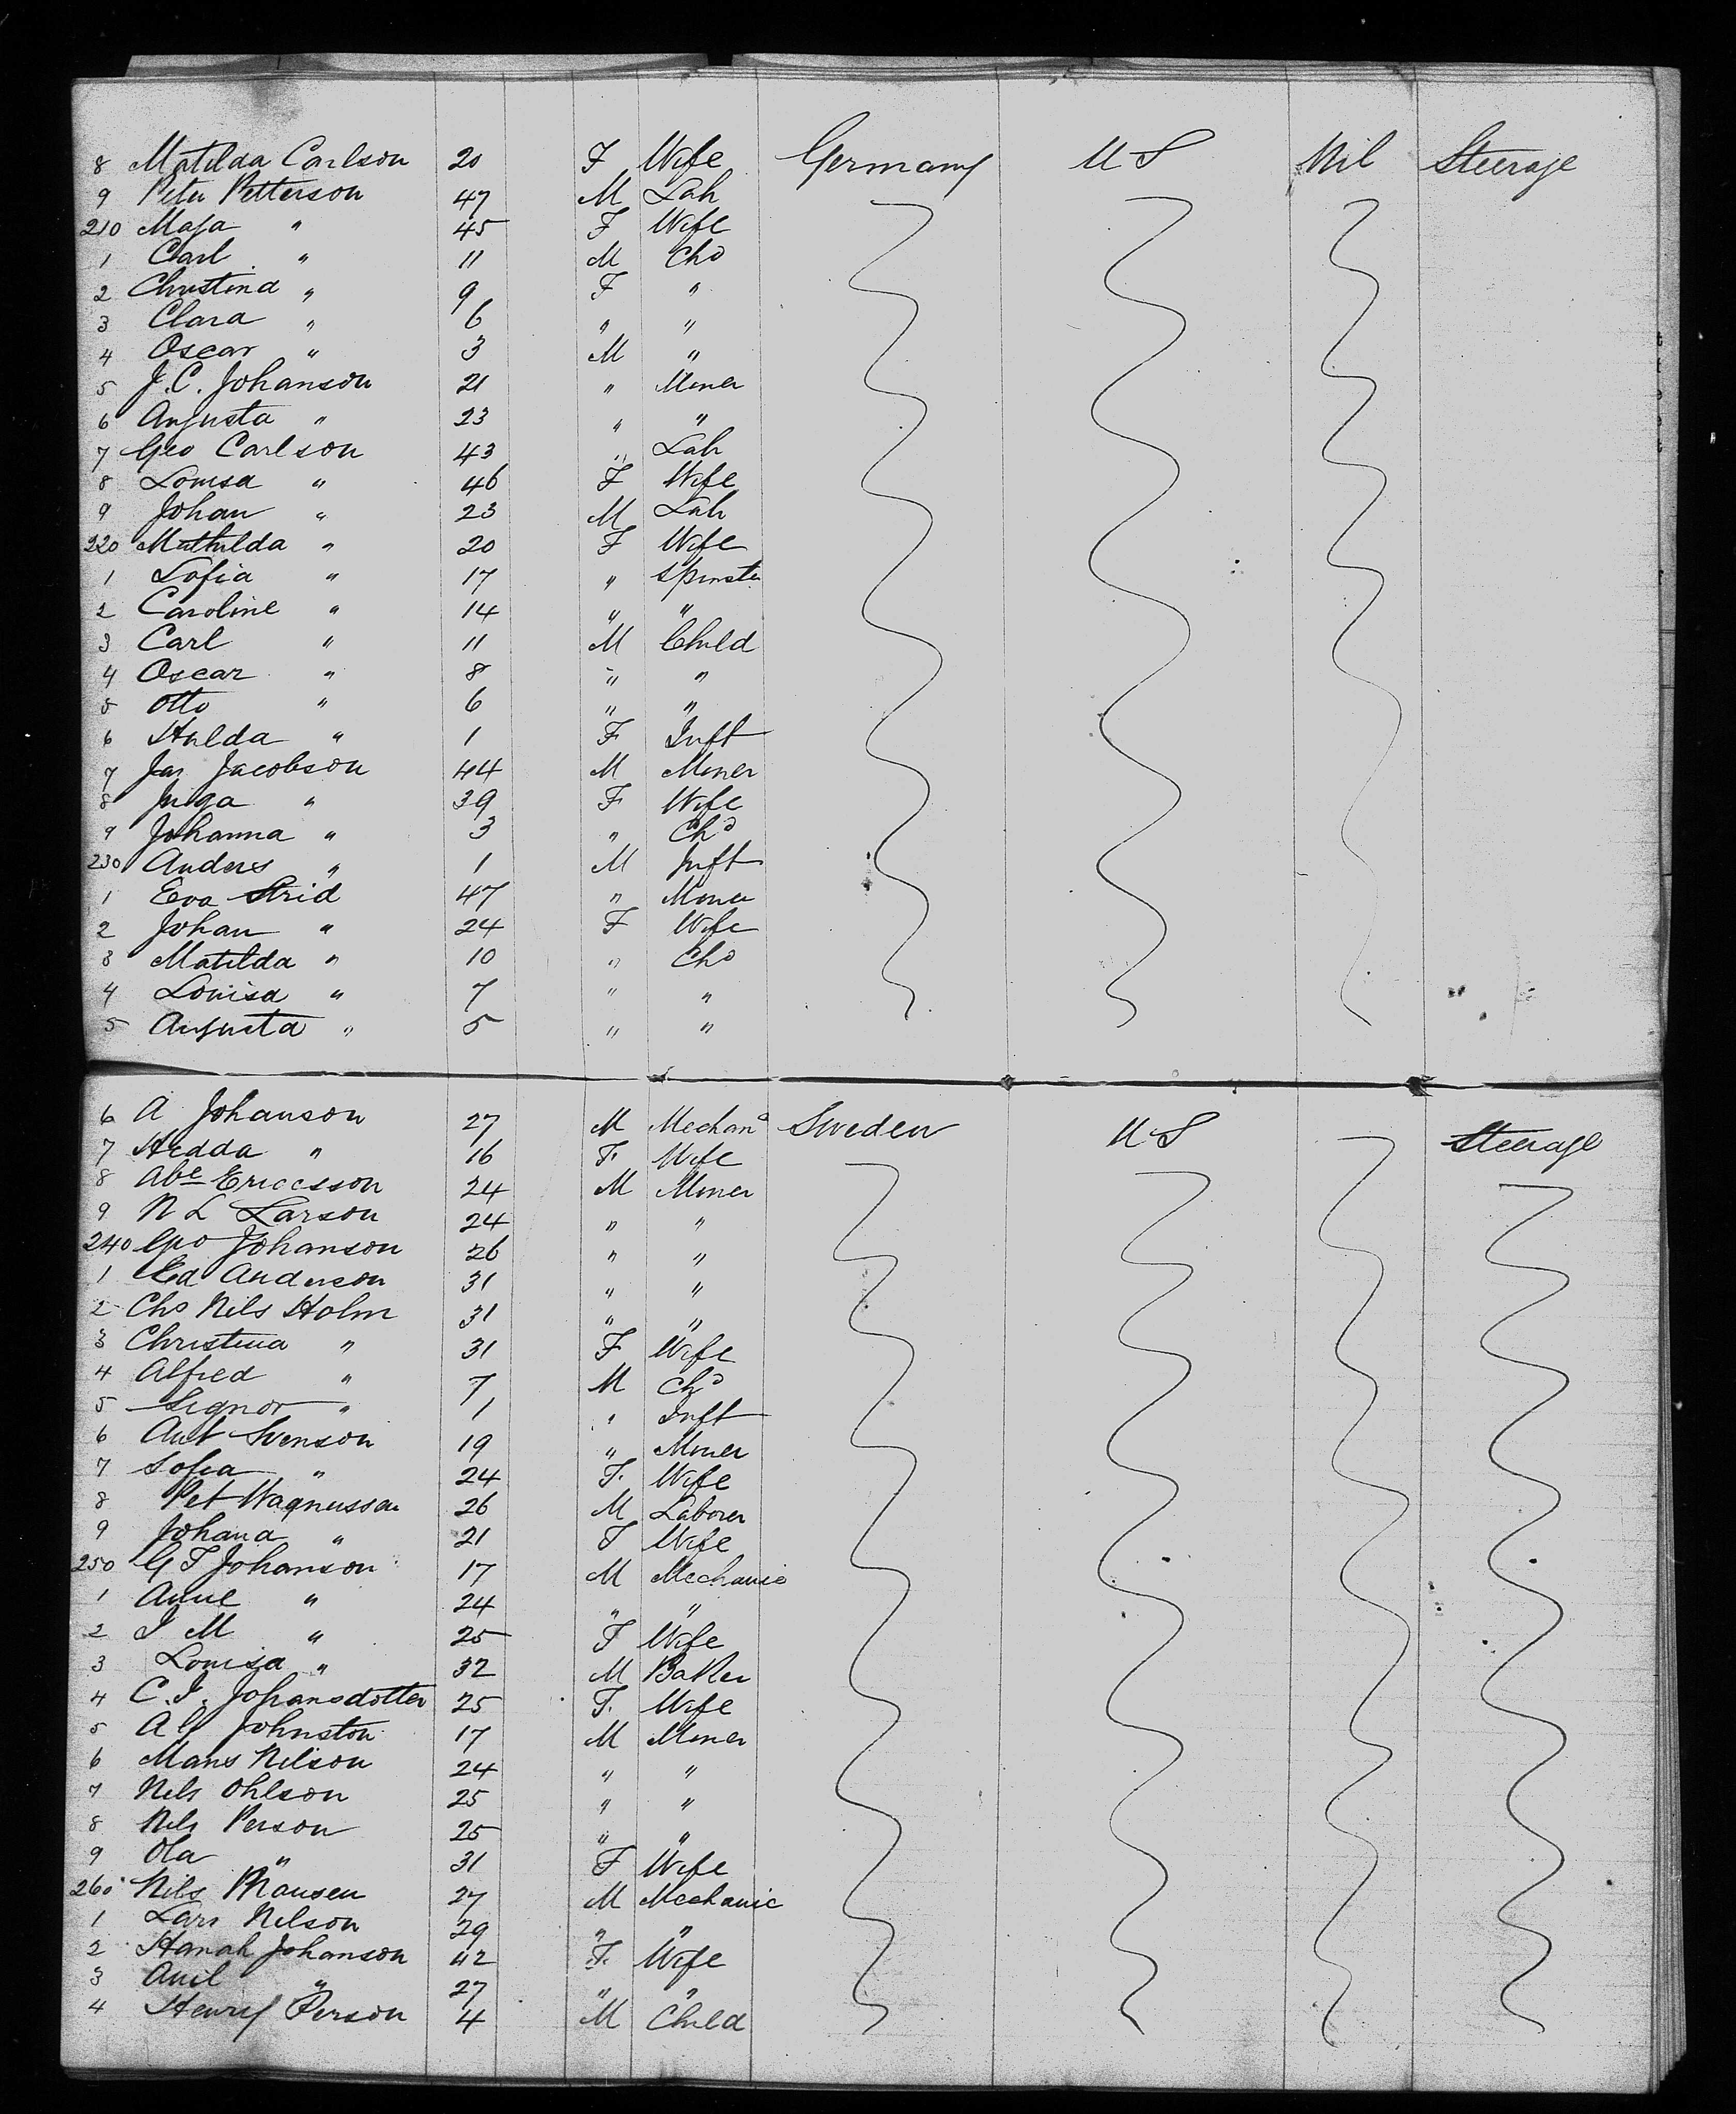 8 Matilda Carlson 20 F Wife Germany U S Nil Steerage
9 Peter Petterson 47 M Lab
210 Maja " 45 F Wife
1 Carl " 11 M Chd
2 Christina " 9 F "
3 Clara " 6 " "
4 Oscar " 3 M "
5 J. C. Johanson 21 " Miner
6 Augusta " 23 " "
7 Geo Carlson 43 " Lab
8 Louisa " 46 F Wife
9 Johan " 23 M Lab
220 Mathilda " 20 F Wife
1 Sofia " 17 " Spinster
2 Caroline " 14 " "
3 Carl " 11 M Child
4 Oscar " 8 " "
5 Otto " 6 " "
6 Hulda " 1 F Inft
7 Jas Jacobson 44 M Miner
8 Inga " 39 F Wife
9 Johanna " 3 " Chd
230 Anders " 1 M Inft
1 Eva Strid 47 " Miner
2 Johan " 24 F Wife
3 Matilda " 10 " Chd
4 Louisa " 7 " "
5 Augusta " 5 " "
6 A Johanson 27 M Mechanc Sweden U S Steerage
7 Hedda " 16 F. Wife
8 Abe Ericsson 24 M Miner
9 N L Larson 24 " "
240 Geo Johanson 26 " "
1 Ed Anderson 31 " "
2 Chs Nils Holm 31 " "
3 Christina " 31 F Wife
4 Alfred " 7 M Chd
5 Signor " 1 " Inft
6 Aut Svenson 19 " Miner
7 Sofia " 24 F. Wife
8 Pet Magnusson 26 M Laborer
9 Johana " 21 F Wife
250 G F Johanson 17 M Mechanic
1 Anne " 24 " "
2 I M " 25 F Wife
3 Louisa " 32 M Baker
4 C. I. Johansdotter 25 F. Wife
5 A G Johnston 17 M Miner
6 Mans Nilson 24 " "
7 Nels Ohlson 25 " "
8 Nils Person 25 " "
9 Ola " 31 F Wife
260 Nils Mansen 27 M Mechanic
1 Lars Nelson 29 " "
2 Hanah Johanson 42 F. Wife
3 " 27 " "
4 Henry Person 4 M Child